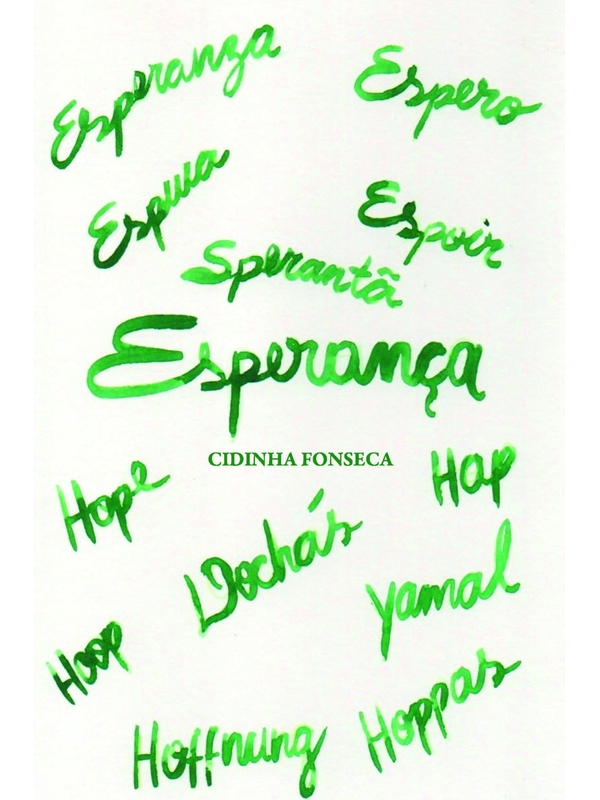 Esperanza
Espero
Espwa
Espoir
Sperantã
Esperança
CIDINHA FONSECA
Hope
Hap
Dochás
Yamal
Hoop
Hoffnung
Hoppas